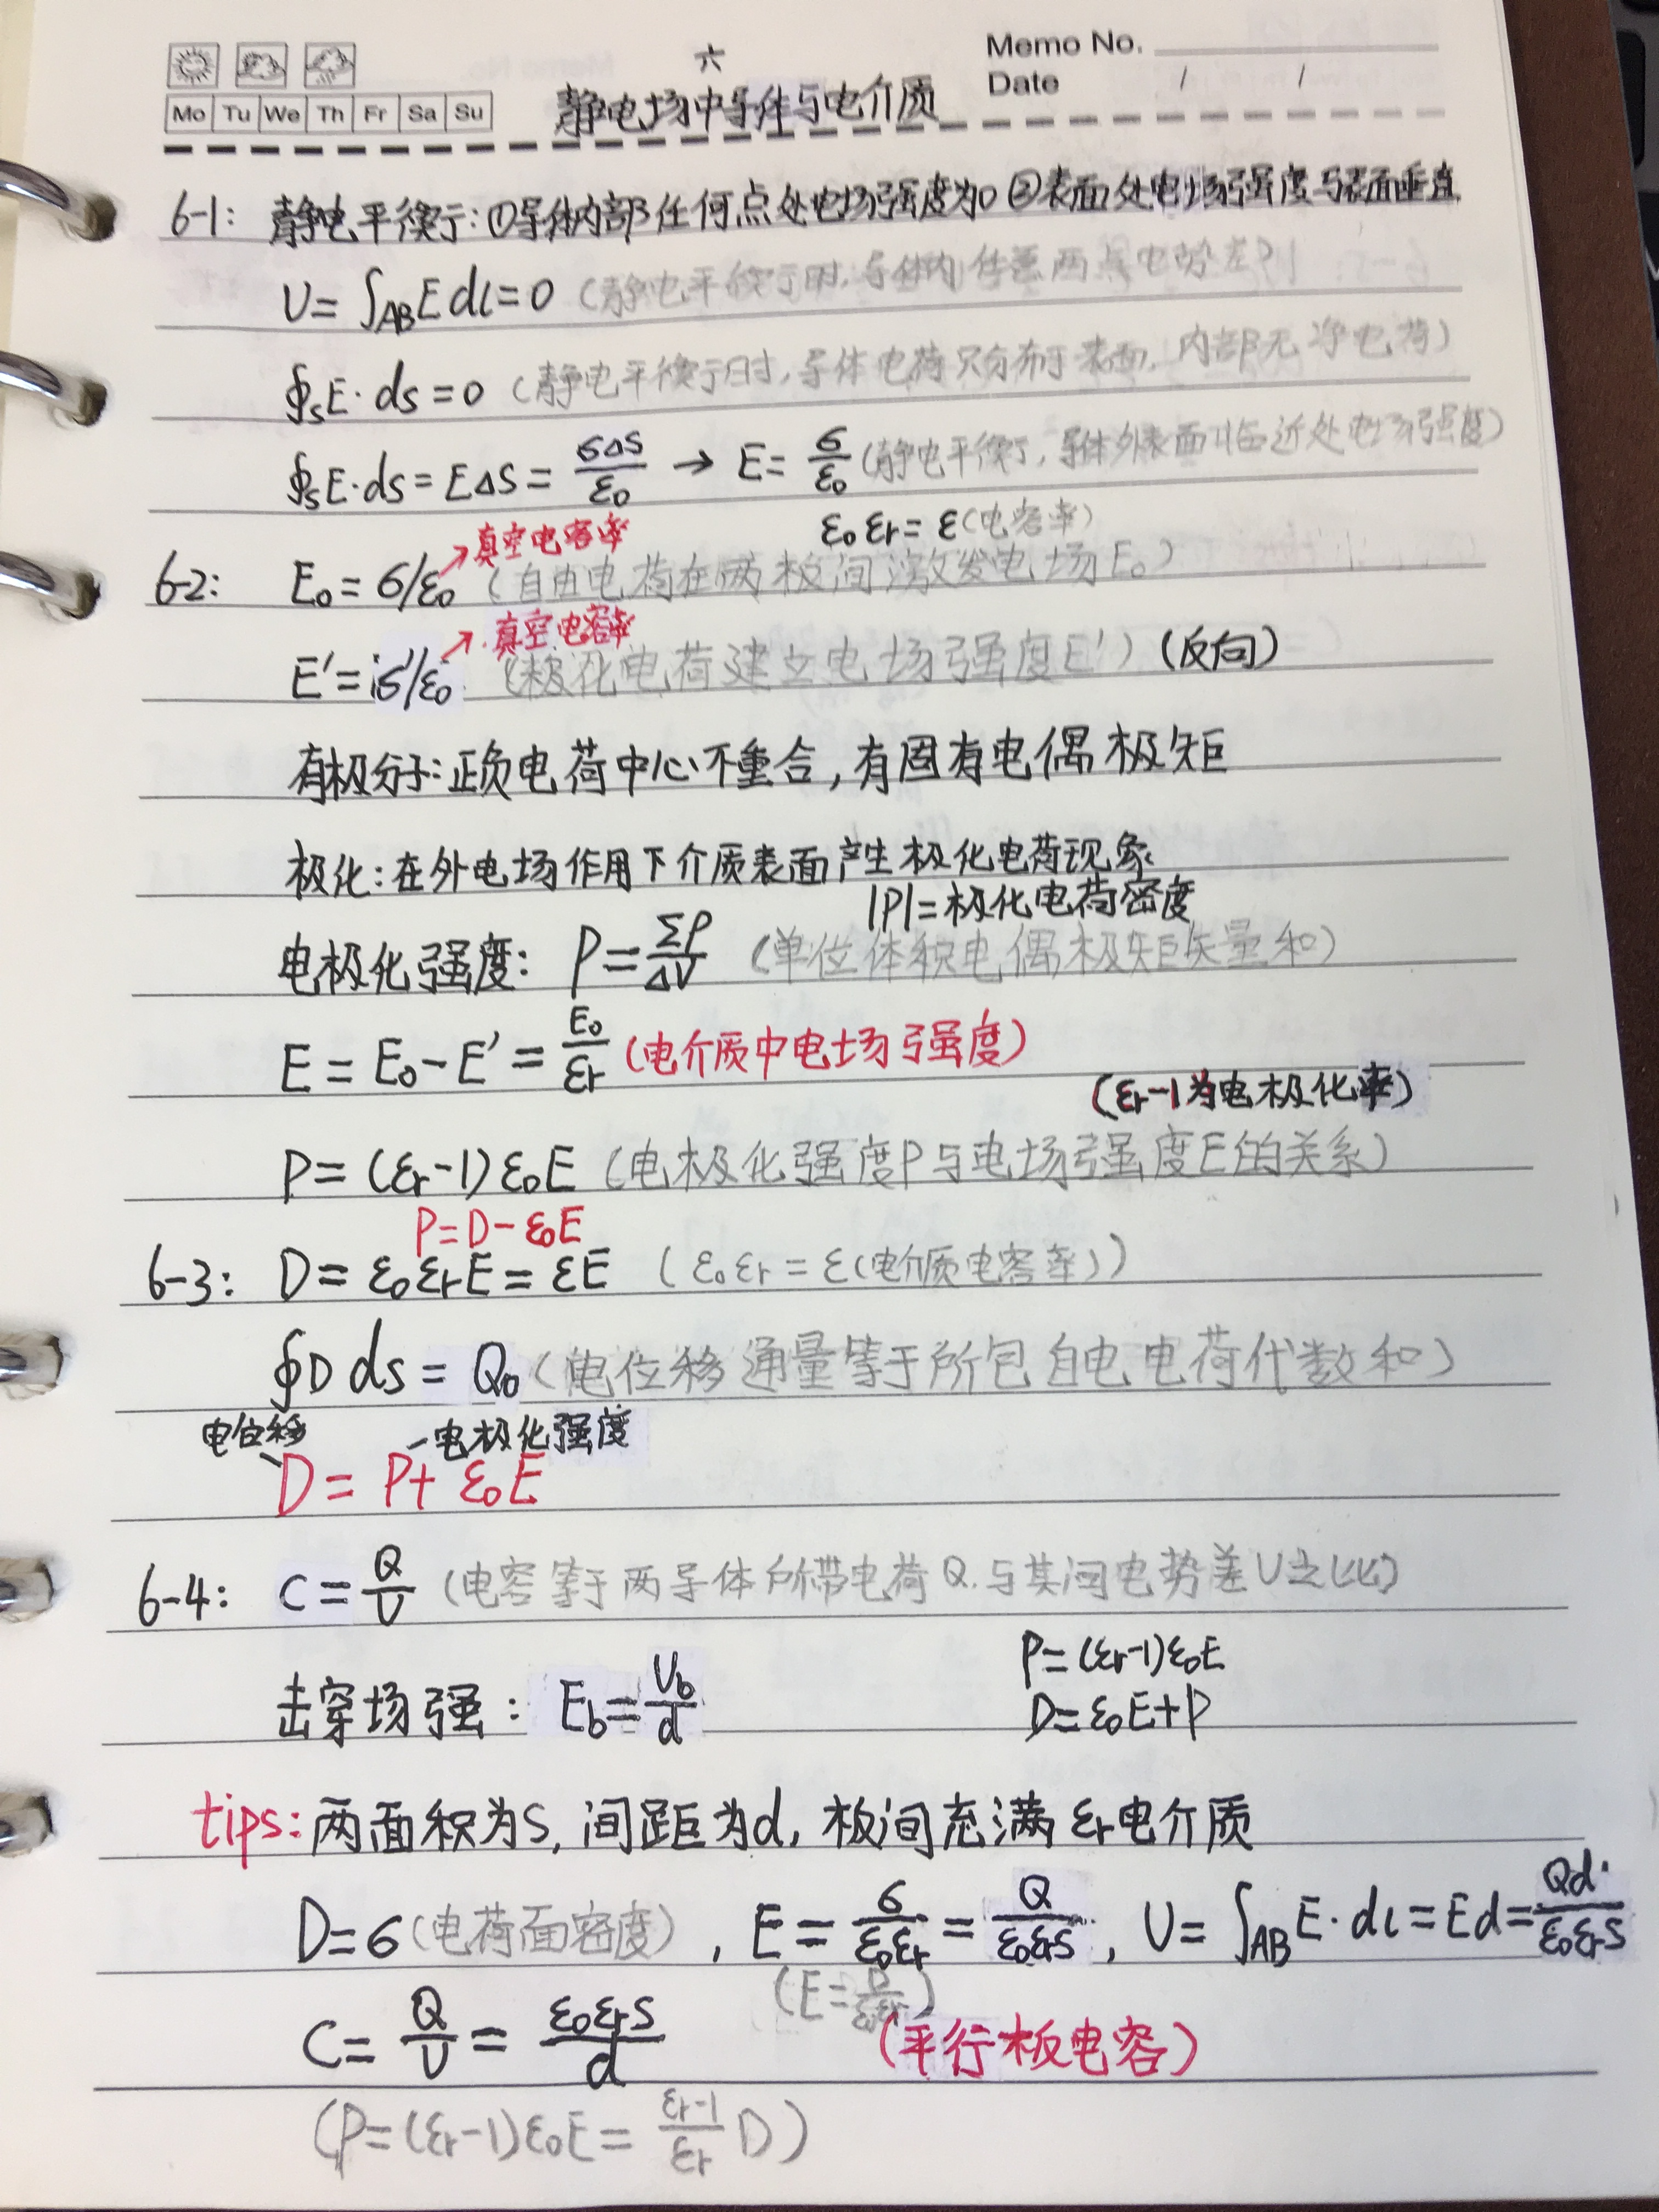 六
Memo No.
Date / /
Mo Tu We Th Fr Sa Su
静电场中导体与电介质
6-1: 静电平衡: ①导体内部任何点处电场强度为0 ②表面处电场强度与表面垂直
U = ∫AB E dl = 0 (静电平衡时, 导体内任意两点电势差)
∮s E · ds = 0 (静电平衡时, 导体电荷只分布于表面, 内部无净电荷)
∮s E · ds = EΔS = σΔS/ε0 → E = σ/ε0 (静电平衡, 导体外表面临近处电场强度)
→真空电容率
ε0 εr = ε (电容率)
6-2: E0 = σ/ε0 (自由电荷在两板间激发电场E0)
→真空电容率
E' = σ'/ε0 (极化电荷建立电场强度E') (反向)
有极分子: 正负电荷中心不重合, 有固有电偶极矩
极化: 在外电场作用下介质表面产生极化电荷现象
|P| = 极化电荷密度
电极化强度: P = ΣP/ΔV (单位体积电偶极矩矢量和)
E = E0 - E' = E0/εr (电介质中电场强度)
(εr-1为电极化率)
P = (εr-1) ε0E (电极化强度P与电场强度E的关系)
P = D - ε0E
6-3: D = ε0εrE = εE (ε0εr = ε(电介质电容率))
∮D ds = Q0 (电位移通量等于所包自电电荷代数和)
电位移 电极化强度
D = P + ε0E
6-4: C = Q/U (电容等于两导体所带电荷Q与其间电势差U之比)
P = (εr-1)ε0E
击穿场强: Eb = Ub/d
D = ε0E + P
tips: 两面积为S, 间距为d, 板间充满εr电介质
D = σ (电荷面密度), E = σ/ε0εr = Q/ε0εrS, U = ∫AB E · dl = Ed = Qd/ε0εrS
(E = D/ε0εr)
C = Q/U = ε0εrS/d (平行板电容)
(P = (εr-1)ε0E = εr-1/εr D)